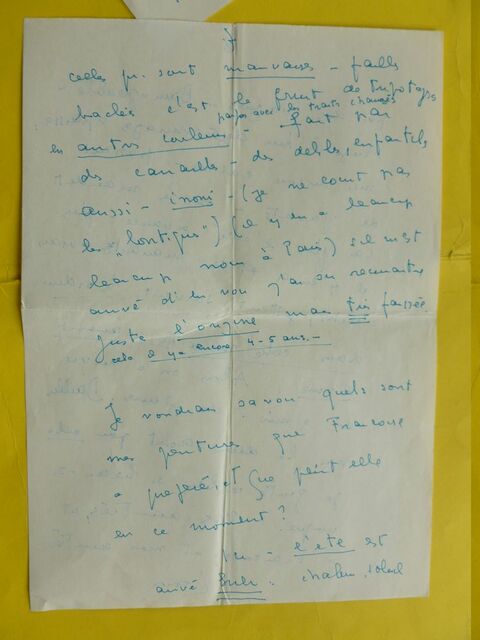 7
celles qui sont mauvaises – faites
baclés c'est le fruit de tripotages
parfois avec les traits changés
en autres couleurs – fait par
des canailles – des debiles, enfantils
aussi – inoui – (je ne court pas
les "boutiques") (il y en a beaucoup
beaucoup nous à Paris) s'il m'est
arrivé d'en voir j'ai su reconnaitre
juste l'origine mais très faussée.
cela il y a encore 4-5 ans. –
Je voudrais savoir quels sont
mes peintures que Francoise
a preferé, et que peint elle
en ce moment?
Ici – l'été est
arrivé chaleur, soleil